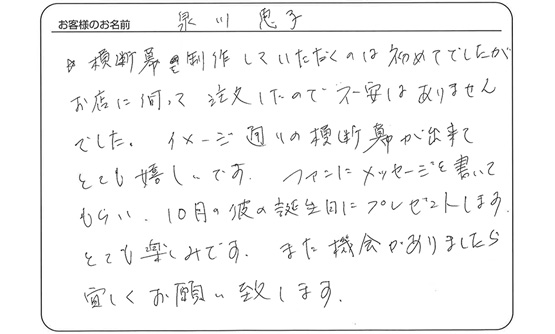 お客様のお名前 泉川 恵子
横断幕を制作していただくのは初めてでしたが
お店に伺って注文したので不安はありません
でした。イメージ通りの横断幕が出来て
とても嬉しいです。ファンにメッセージを書いて
もらい、10月の彼の誕生日にプレゼントします。
とても楽しみです。また機会がありましたら
宜しくお願い致します。